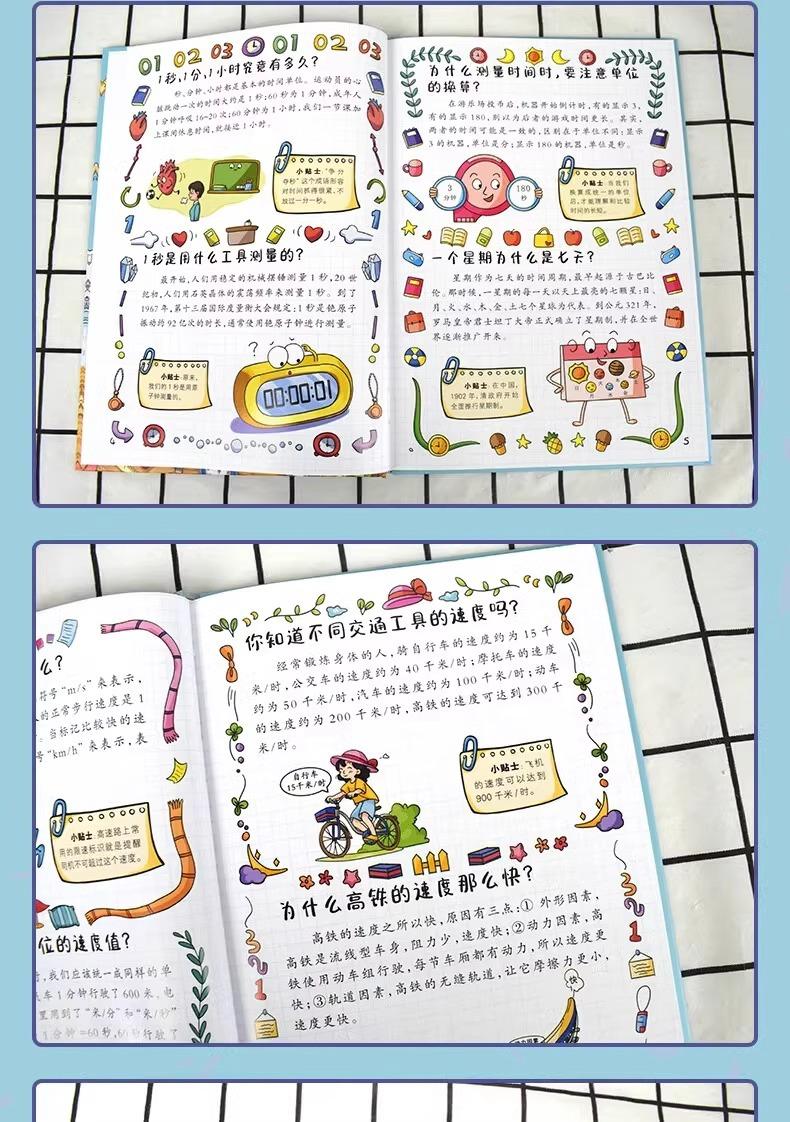 01 02 03 01 02 03
1秒,1分,1小时究竟有多久?
秒、分钟、小时都是基本的时间单位。运动员的心
脏跳动一次的时间大约是1秒;60秒为1分钟,成年人
1分钟呼吸16~20次;60分钟为1小时,我们一节课加
上课间休息时间,就接近1小时。
小贴士:“争分
夺秒”这个成语形容
对时间抓得很紧,不
放过一分一秒。
1秒是用什么工具测量的?
最开始,人们用稳定的机械摆锤测量1秒,20世
纪初,人们用石英晶体的震荡频率来测量1秒。到了
1967年,第十三届国际度量衡大会规定:1秒是铯原子
振动约92亿次的时长,通常使用铯原子钟进行测量。
小贴士:原来,
我们的1秒是用原
子钟测量的。
?
00:00:01
4
为什么测量时间时,要注意单位
的换算?
在游乐场投币后,机器开始倒计时,有的显示3,
有的显示180,别以为后者的游戏时间更长。其实,
两者的时间可能是一致的,区别在于单位不同:显示
3的机器,单位是分;显示180的机器,单位是秒。
3
分钟
180
秒
小贴士:当我们
换算成统一的单位
后,才能理解和比较
时间的长短。
一个星期为什么是七天?
星期作为七天的时间周期,最早起源于古巴比
伦。那时候,一星期的每一天以天上最亮的七颗星:日、
月、火、水、木、金、土七个星球为代表。到公元321年,
罗马皇帝君士坦丁大帝正式确立了星期制,并在全世
界逐渐推广开来。
小贴士:在中国,
1902年,清政府开始
全面推行星期制。
5
么?
符号“m/s”来表示,
的正常步行速度是1
。当标记比较快的速
号“km/h”来表示,表
小贴士:高速路上常
用的限速标识就是提醒
司机不可超过这个速度。
位的速度值?
,我们应该统一成同样的单
车1分钟行驶了600米,电
里用到了“米/分”和“米/秒”
1分钟=60秒,60秒行驶了
你知道不同交通工具的速度吗?
经常锻炼身体的人,骑自行车的速度约为15千
米/时,公交车的速度约为40千米/时;摩托车的速度
约为50千米/时,汽车的速度约为100千米/时;动车
的速度约为200千米/时,高铁的速度可达到300千
米/时。
自行车
15千米/时
小贴士:飞机
的速度可以达到
900千米/时。
为什么高铁的速度那么快?
高铁的速度之所以快,原因有三点:①外形因素,
高铁是流线型车身,阻力少,速度快;②动力因素,高
铁使用动车组行驶,每节车厢都有动力,所以速度更
快;③轨道因素,高铁的无缝轨道,让它摩擦力更小,
速度更快。
快
3
2
1
3
2
1